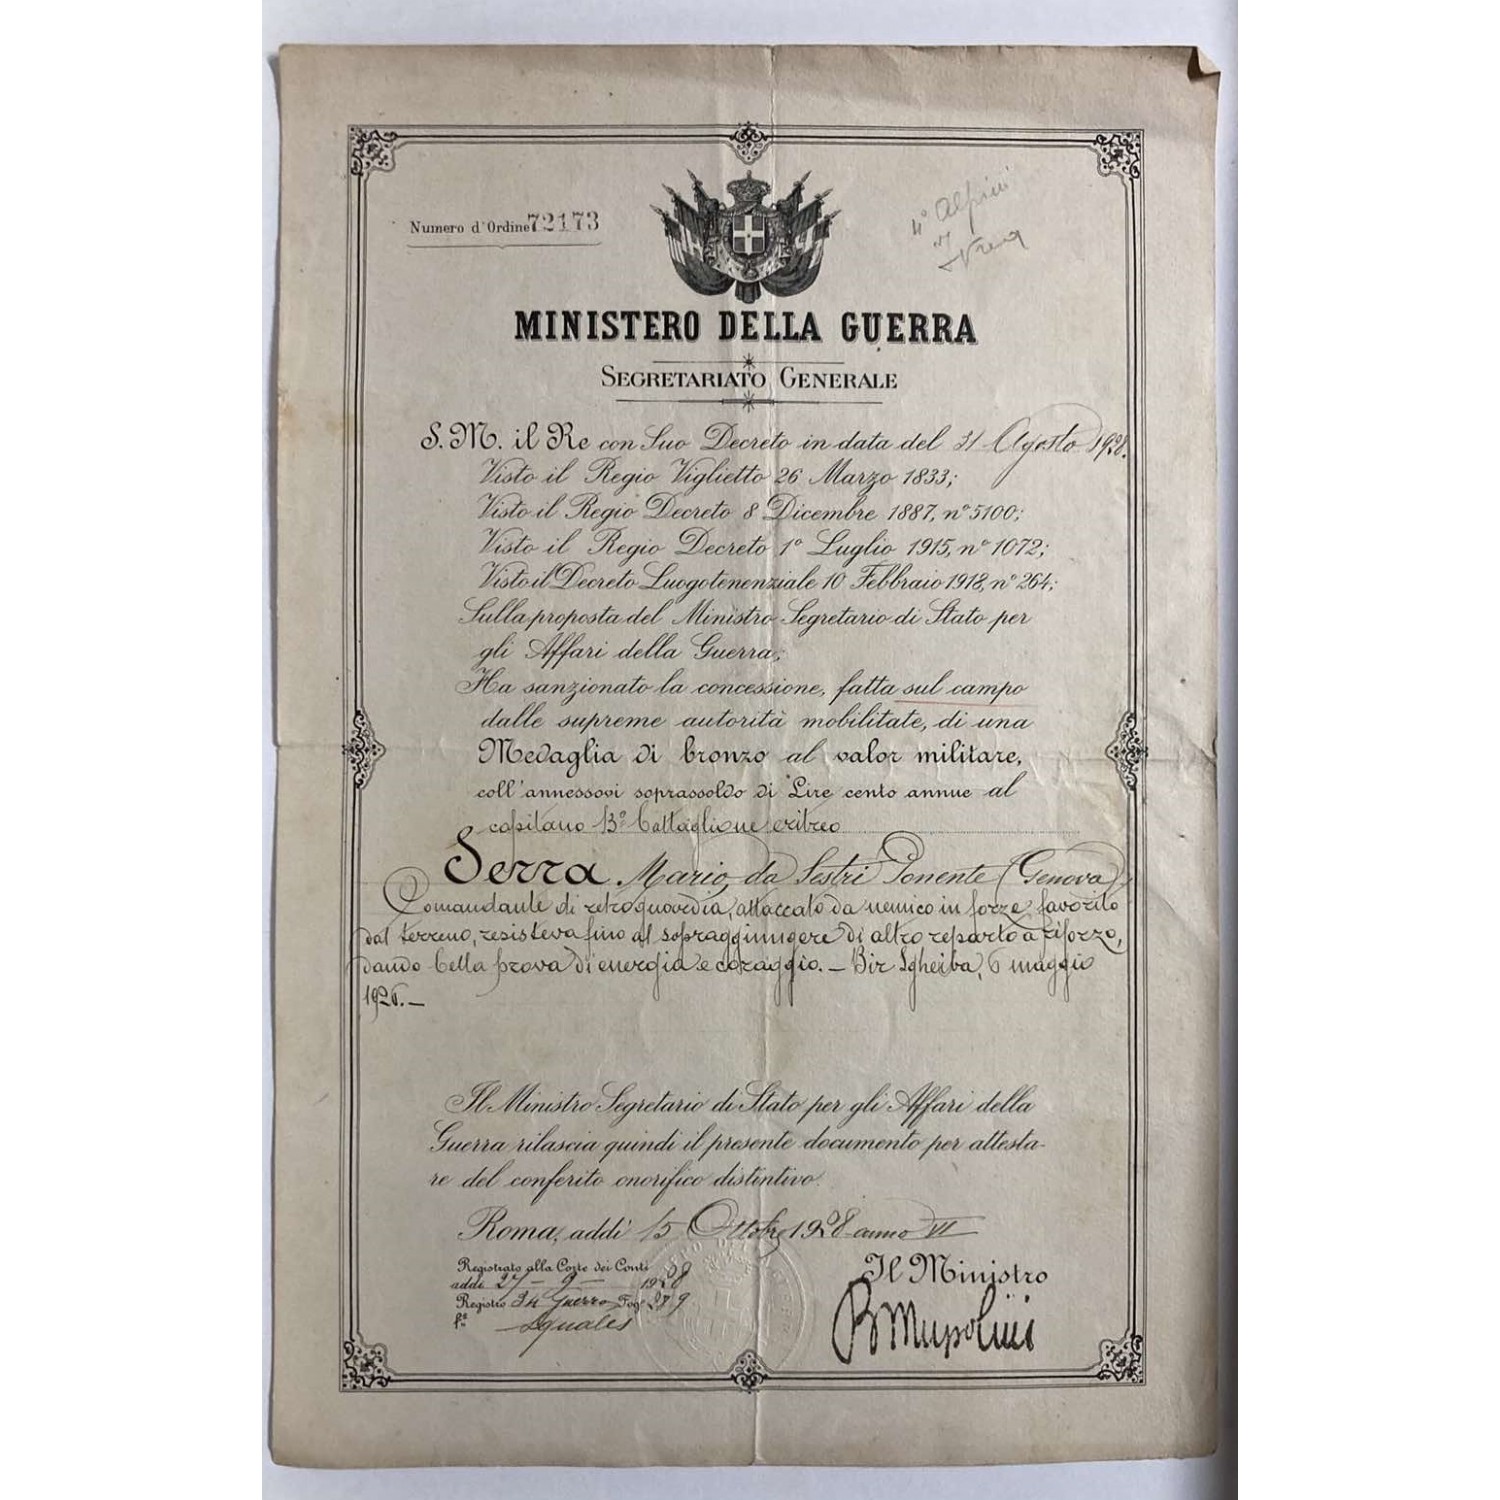 Numero d'Ordine 72173
4° Alpini
Ivrea
MINISTERO DELLA GUERRA
SEGRETARIATO GENERALE
S. M. il Re con Suo Decreto in data del 31 Agosto 1928.
Visto il Regio Viglietto 26 Marzo 1833;
Visto il Regio Decreto 8 Dicembre 1887, n° 5100;
Visto il Regio Decreto 1° Luglio 1915, n° 1072;
Visto il Decreto Luogotenenziale 10 Febbraio 1918, n° 264;
Sulla proposta del Ministro Segretario di Stato per
gli Affari della Guerra;
Ha sanzionato la concessione, fatta sul campo
dalle supreme autorità mobilitate, di una
Medaglia di bronzo al valor militare,
coll'annessovi soprassoldo di Lire cento annue al
capitano 13° battaglione eritreo
Serra Mario, da Sestri Ponente (Genova)
Comandante di retroguardia, attaccato da nemico in forze, favorito
dal terreno, resisteva fino al sopraggiungere di altro reparto a riforzo,
dando bella prova di energia e coraggio. — Bir Sgheiba, 6 maggio
1926. —
Il Ministro Segretario di Stato per gli Affari della
Guerra rilascia quindi il presente documento per attesta-
re del conferito onorifico distintivo.
Roma, addì 15 Ottobre 1928 anno VI
Registrato alla Corte dei Conti
addì 27 - 9 - 1928
Registro 34 Guerra Fog.
f.°
Il Ministro
B Mussolini